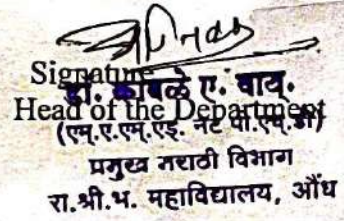 Signature
डॉ. कांबळे ए. वाय.
Head of the Department
(एम.ए.एम.एड. नेट पी.एच.डी)
प्रमुख मराठी विभाग
रा.श्री.भ. महाविद्यालय, औंध